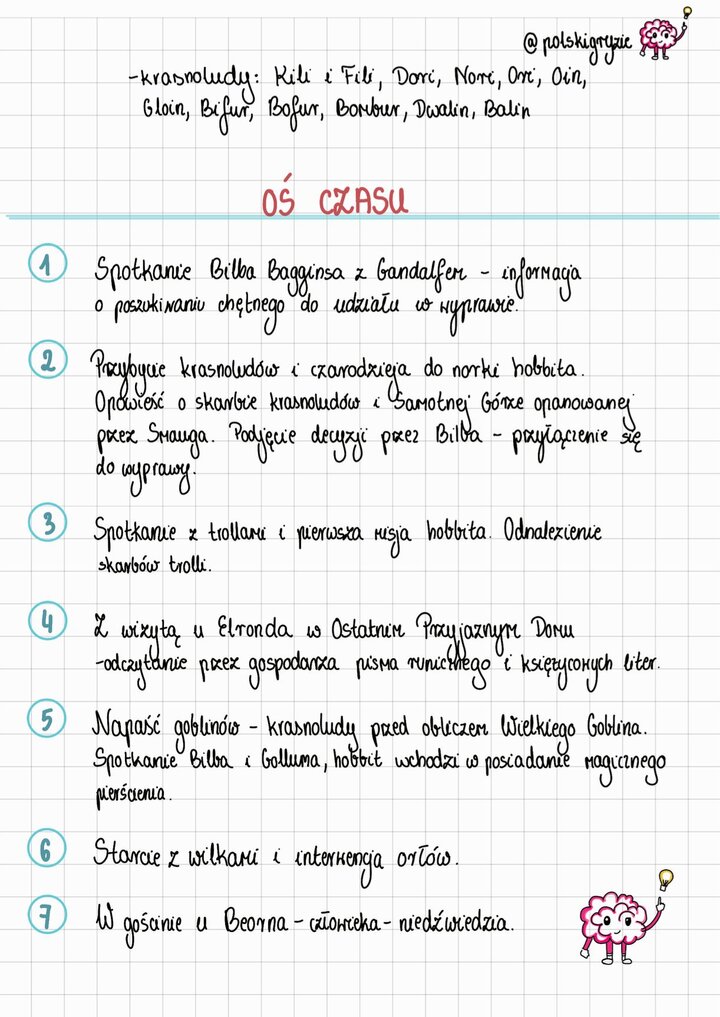 @polskigryzie
-krasnoludy: Kili i Fili, Dori, Nori, Ori, Oin,
Gloin, Bifur, Bofur, Bombur, Dwalin, Balin
OŚ CZASU
1 Spotkanie Bilba Bagginsa z Gandalfem - informacja
o poszukiwaniu chętnego do udziału w wyprawie.
2 Przybycie krasnoludów i czarodzieja do norki hobbita.
Opowieść o skarbie krasnoludów i Samotnej Górze opanowanej
przez Smauga. Podjęcie decyzji przez Bilba - przyłączenie się
do wyprawy.
3 Spotkanie z trollami i pierwsza misja hobbita. Odnalezienie
skarbów trolli.
4 Z wizytą u Elronda w Ostatnim Przyjaznym Domu
-odczytanie przez gospodarza pisma runicznego i księżycowych liter.
5 Napaść goblinów - krasnoludy przed obliczem Wielkiego Goblina.
Spotkanie Bilba i Golluma, hobbit wchodzi w posiadanie magicznego
pierścienia.
6 Starcie z wilkami i interwencja orłów.
7 W gościnie u Beorna - człowieka - niedźwiedzia.